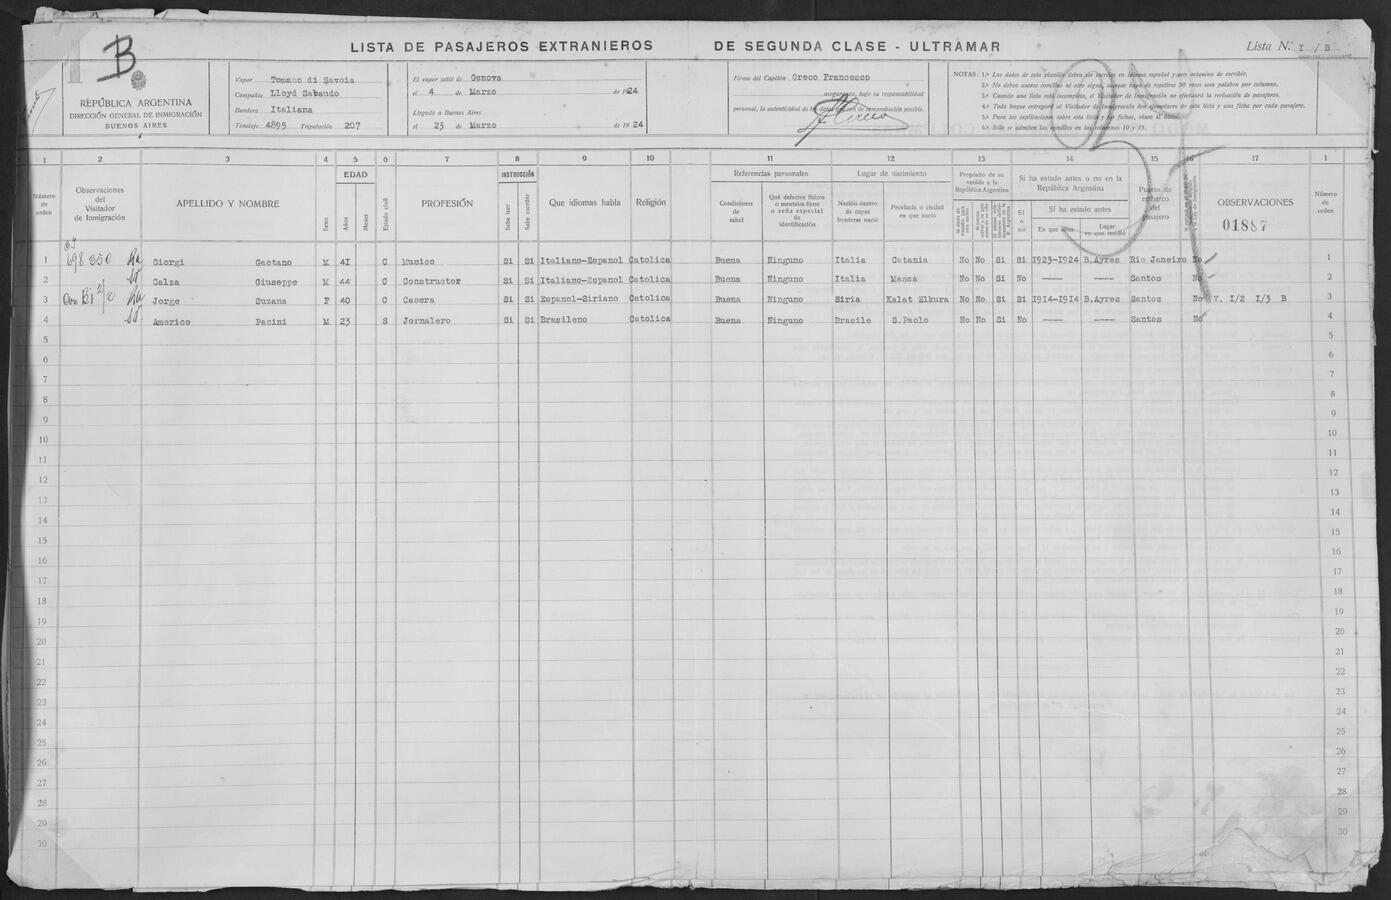 B
LISTA DE PASAJEROS EXTRANIEROS DE SEGUNDA CLASE - ULTRAMAR
Lista N.º I / B
REPÚBLICA ARGENTINA
DIRECCIÓN GENERAL DE INMIGRACIÓN
BUENOS AIRES
Vapor Tomaso di Savoia
Compañía Lloyd Sabaudo
Bandera Italiana
Tonelaje 4895 Tripulación 207
El vapor salió de Genova
el 4 de Marzo de 1924
Llegado a Buenos Aires
el 23 de Marzo de 1924
Firma del Capitán Greco Francesco
asegurando, bajo su responsabilidad
personal, la autenticidad de los datos de comprobación posible.
NOTAS: 1.ª Los datos de esta planilla deben ser escritos en idioma español y con máquina de escribir.
2.ª No deben usarse comillas ni otro signo, aunque haya de repetirse 30 veces una palabra por columna.
3.ª Cuando una lista está incompleta, el Visitador de Inmigración no efectuará la revisación de pasajeros.
4.ª Todo buque entregará al Visitador de Inmigración dos ejemplares de esta lista y una ficha por cada pasajero.
5.ª Para las explicaciones sobre esta lista y las fichas, véase al dorso.
6.ª Sólo se admiten las comillas en las columnas 10 y 15.
1 2 3 4 5 6 7 8 9 10 11 12 13 14 15 16 17 1
Número de orden
Observaciones del Visitador de Inmigración
APELLIDO Y NOMBRE
Sexo
EDAD
Años
Meses
Estado civil
PROFESIÓN
INSTRUCCIÓN
Sabe leer
Sabe escribir
Que idiomas habla
Religión
Referencias personales
Condiciones de salud
Qué defectos físicos o mentales tiene o seña especial de identificación
Lugar de nacimiento
Nación dentro de cuyas fronteras nació
Provincia o ciudad en que nació
Propósito de su venida a la República Argentina
Si ha estado antes o no en la República Argentina
Sí o no
Si ha estado antes
En que años
Lugar en que residió
Puerto de embarco del pasajero
OBSERVACIONES
01887
Número de orden
1 698350 Giorgi Gaetano M 41 C Musico Si Si Italiano-Espanol Catolica Buena Ninguno Italia Catania No No Si Si 1923-1924 B.Ayres Rio Janeiro No 1
2 Calza Giuseppe M 44 C Constructor Si Si Italiano-Espanol Catolica Buena Ninguno Italia Massa No No Si No — — Santos No 2
3 Jorge Suzana F 40 C Casera Si Si Espanol-Siriano Catolica Buena Ninguno Siria Kalat Elkura No No Si Si 1914-1914 B.Ayres Santos No V. I/2 I/3 B 3
4 Americo Pacini M 23 S Jornalero Si Si Brasileno Catolica Buena Ninguno Brasile S.Paolo No No Si No — — Santos No 4
5 5
6 6
7 7
8 8
9 9
10 10
11 11
12 12
13 13
14 14
15 15
16 16
17 17
18 18
19 19
20 20
21 21
22 22
23 23
24 24
25 25
26 26
27 27
28 28
29 29
30 30